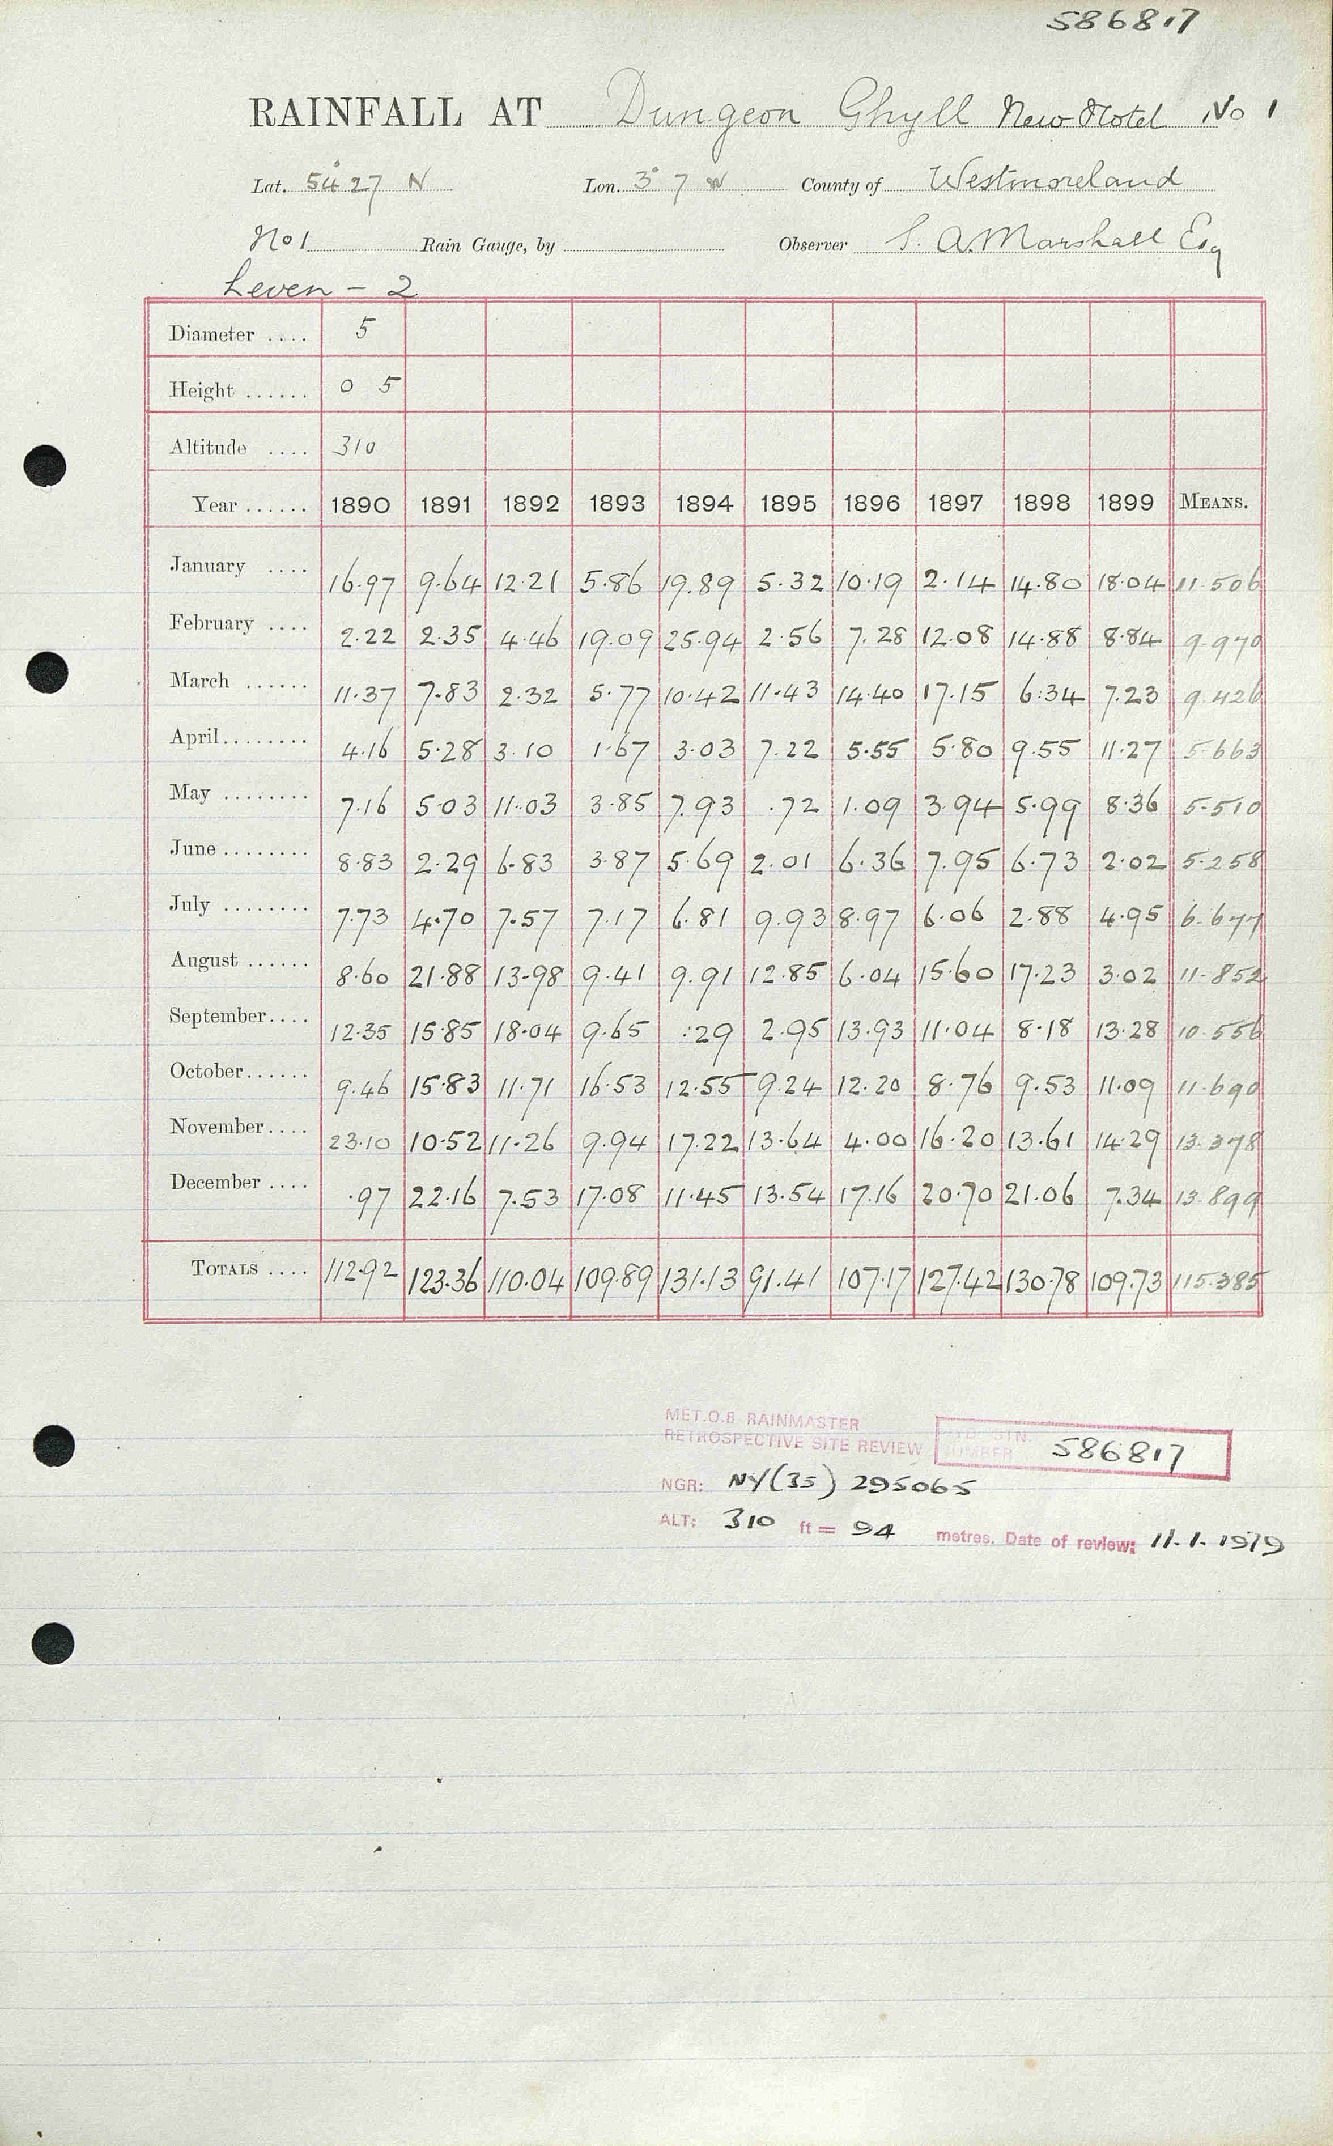 586817
RAINFALL AT Dungeon Ghyll New Hotel No 1
Lat. 54° 27 N Lon. 3° 7 W County of Westmoreland
No 1 Rain Gauge, by Observer S. A. Marshall Esq
Leven - 2
Diameter .... 5
Height ...... 0 5
Altitude .... 310
Year ...... 1890 1891 1892 1893 1894 1895 1896 1897 1898 1899 MEANS.
January .... 16.97 9.64 12.21 5.86 19.89 5.32 10.19 2.14 14.80 18.04 11.506
February .... 2.22 2.35 4.46 19.09 25.94 2.56 7.28 12.08 14.88 8.84 9.970
March ...... 11.37 7.83 2.32 5.77 10.42 11.43 14.40 17.15 6.34 7.23 9.426
April........ 4.16 5.28 3.10 1.67 3.03 7.22 5.55 5.80 9.55 11.27 5.663
May ........ 7.16 5.03 11.03 3.85 7.93 .72 1.09 3.94 5.99 8.36 5.510
June ........ 8.83 2.29 6.83 3.87 5.69 2.01 6.36 7.95 6.73 2.02 5.258
July ........ 7.73 4.70 7.57 7.17 6.81 9.93 8.97 6.06 2.88 4.95 6.677
August ...... 8.60 21.88 13.98 9.41 9.91 12.85 6.04 15.60 17.23 3.02 11.852
September.... 12.35 15.85 18.04 9.65 .29 2.95 13.93 11.04 8.18 13.28 10.556
October...... 9.46 15.83 11.71 16.53 12.55 9.24 12.20 8.76 9.53 11.09 11.690
November.... 23.10 10.52 11.26 9.94 17.22 13.64 4.00 16.20 13.61 14.29 13.378
December .... .97 22.16 7.53 17.08 11.45 13.54 17.16 20.70 21.06 7.34 13.899
TOTALS .... 112.92 123.36 110.04 109.89 131.13 91.41 107.17 127.42 130.78 109.73 115.385
MET.O.8 RAINMASTER
RETROSPECTIVE SITE REVIEW STN. NUMBER 586817
NGR: NY(35) 295065
ALT: 310 ft = 94 metres. Date of review: 11.1.1979